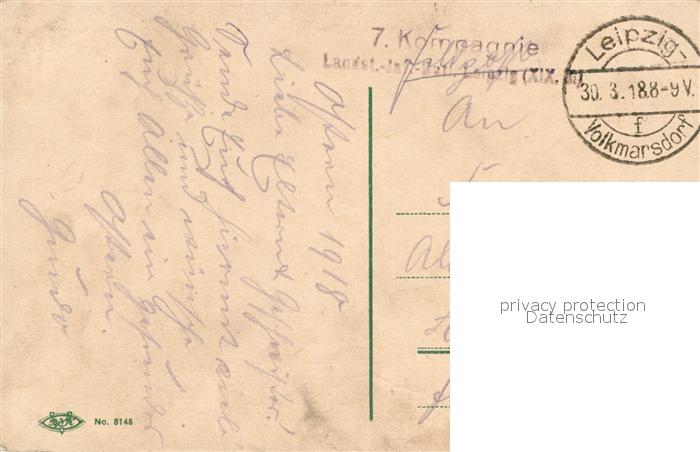 7. Kompagnie
Landst.-Inf.-Batl. Leipzig (XIX. 8)
Feldpost
Leipzig-
30. 3. 18. 8-9 V.
f
Volkmarsdorf
An
privacy protection
Datenschutz
Ostern 1918.
Liebe Eltern & Geschwister!
Sende Euch hiermit viele
Grüße und wünsche
Euch Allen ein gesundes
Ostern.
Guido
No. 8145